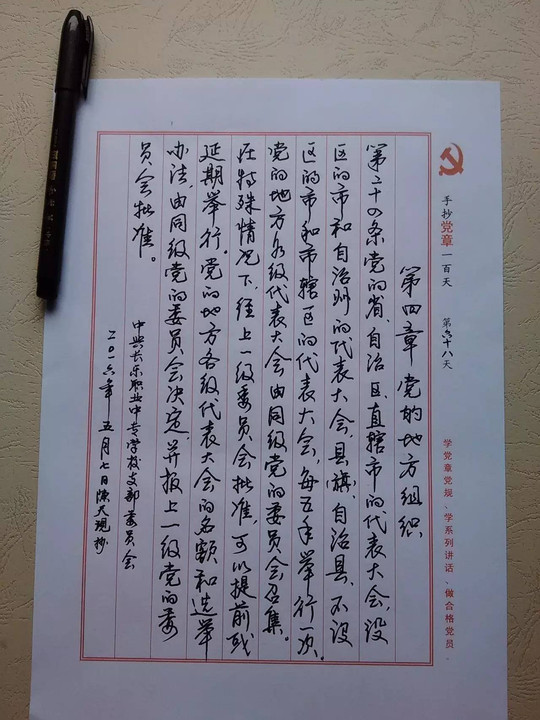 手抄党章一百天 第六十八天
学党章党规、学系列讲话、做合格党员.
第四章 党的地方组织
第二十四条党的省、自治区、直辖市的代表大会，设
区的市和自治州的代表大会，县（旗）、自治县、不设
区的市和市辖区的代表大会，每五年举行一次.
党的地方各级代表大会由同级党的委员会召集。
在特殊情况下，经上一级委员会批准，可以提前或
延期举行。党的地方各级代表大会的名额和选举
办法，由同级党的委员会决定，并报上一级党的委
员会批准。
中共长乐职业中专学校支部委员会
二〇一六年五月七日陈天现抄